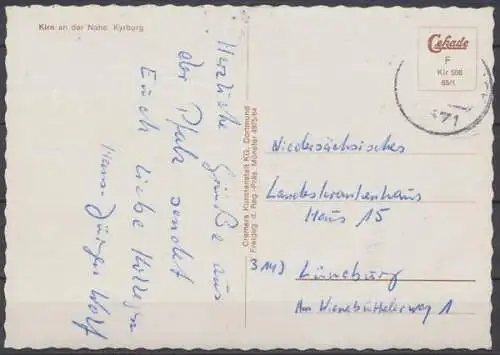 Kirn an der Nahe, Kyrburg
Herzliche Grüße aus
der Pfalz sendet
Euch liebe Kollegen
Hans-Jürgen Wolf
Cramers Kunstanstalt KG, Dortmund
Freigeg. d. Reg.-Präs. Münster 4975/64
Cekade
F
Kir 506
65/1
71
Niedersächsisches
Landeskrankenhaus
Haus 15
3143 Lüneburg
Am Wienebüttelerweg 1